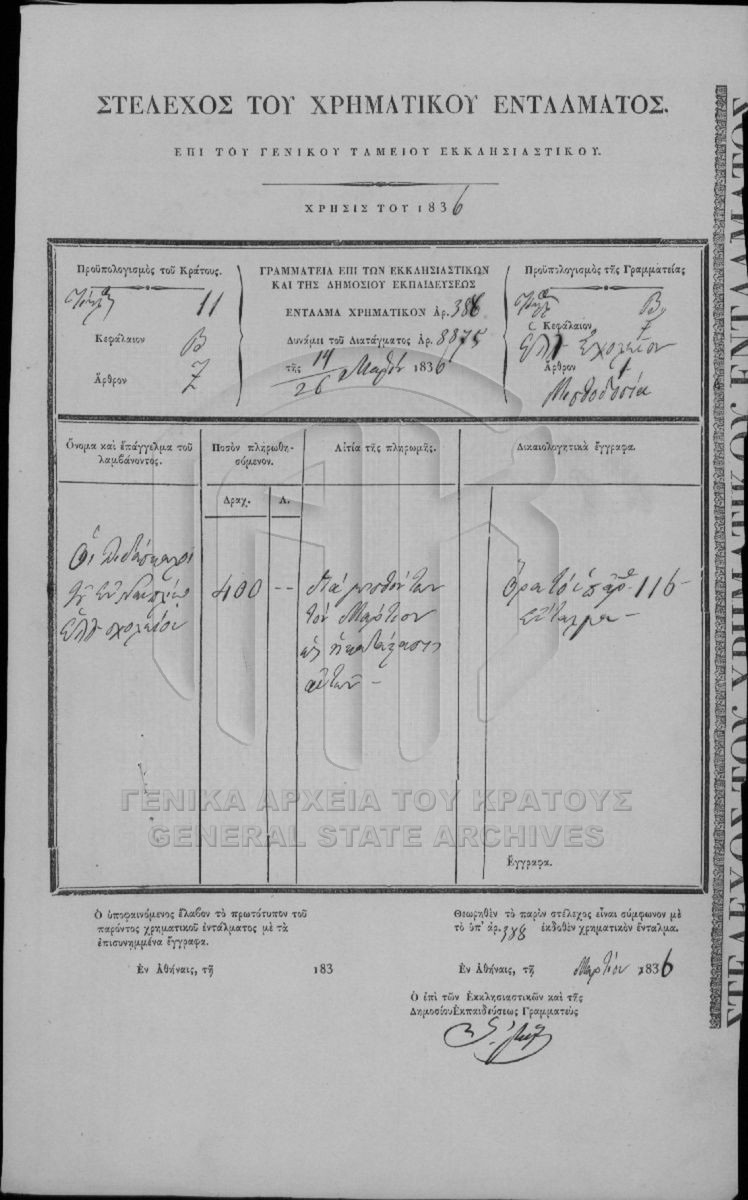 ΣΤΕΛΕΧΟΣ ΤΟΥ ΧΡΗΜΑΤΙΚΟΥ ΕΝΤΑΛΜΑΤΟΣ.
ΕΠΙ ΤΟΥ ΓΕΝΙΚΟΥ ΤΑΜΕΙΟΥ ΕΚΚΛΗΣΙΑΣΤΙΚΟΥ.
ΧΡΗΣΙΣ ΤΟΥ 1836
Προϋπολογισμὸς τοῦ Κράτους.
11
Κεφάλαιον Β
Ἄρθρον Ζ
ΓΡΑΜΜΑΤΕΙΑ ΕΠΙ ΤΩΝ ΕΚΚΛΗΣΙΑΣΤΙΚΩΝ
ΚΑΙ ΤΗΣ ΔΗΜΟΣΙΟΥ ΕΚΠΑΙΔΕΥΣΕΩΣ
ΕΝΤΑΛΜΑ ΧΡΗΜΑΤΙΚΟΝ Ἀρ. 388
Δυνάμει τοῦ Διατάγματος Ἀρ. 8875
τῆς 14/26 Μαρτίου 1836
Προϋπολογισμὸς τῆς Γραμματείας
Β
Κεφάλαιον 7
Ἑλλ. Σχολεῖον
Ἄρθρον 1
Μισθοδοσία
Ὄνομα καὶ ἐπάγγελμα τοῦ
λαμβάνοντος.
Ποσὸν πληρωθη-
σόμενον.
Αἰτία τῆς πληρωμῆς.
Δικαιολογητικὰ ἔγγραφα.
Δραχ.
Λ.
Οἱ διδάσκαλοι
τοῦ ἐν Ναυπλίῳ
Ἑλλ. σχολείου
400 --
Διὰ μισθόν των
τὸν Μάρτιον
ὡς ἡ κατάστασις
αὐτῶν -
Ὅρα τὸ ὑπ' ἀρ. 116 -
ἔνταλμα -
Ἔγγραφα.
Ὁ ὑποφαινόμενος ἔλαβον τὸ πρωτότυπον τοῦ
παρόντος χρηματικοῦ ἐντάλματος μὲ τὰ
ἐπισυνημμένα ἔγγραφα.
Ἐν Ἀθήναις, τῇ 183
Θεωρηθὲν τὸ παρὸν στέλεχος εἶναι σύμφωνον μὲ
τὸ ὑπ' ἀρ. 388 ἐκδοθὲν χρηματικὸν ἔνταλμα.
Ἐν Ἀθήναις, τῇ Μαρτίου 1836
Ὁ ἐπὶ τῶν Ἐκκλησιαστικῶν καὶ τῆς
Δημοσίου Ἐκπαιδεύσεως Γραμματεὺς
ΣΤΕΛΕΧΟΣ ΤΟΥ ΧΡΗΜΑΤΙΚΟΥ ΕΝΤΑΛΜΑΤΟΣ
ΓΕΝΙΚΑ ΑΡΧΕΙΑ ΤΟΥ ΚΡΑΤΟΥΣ
GENERAL STATE ARCHIVES